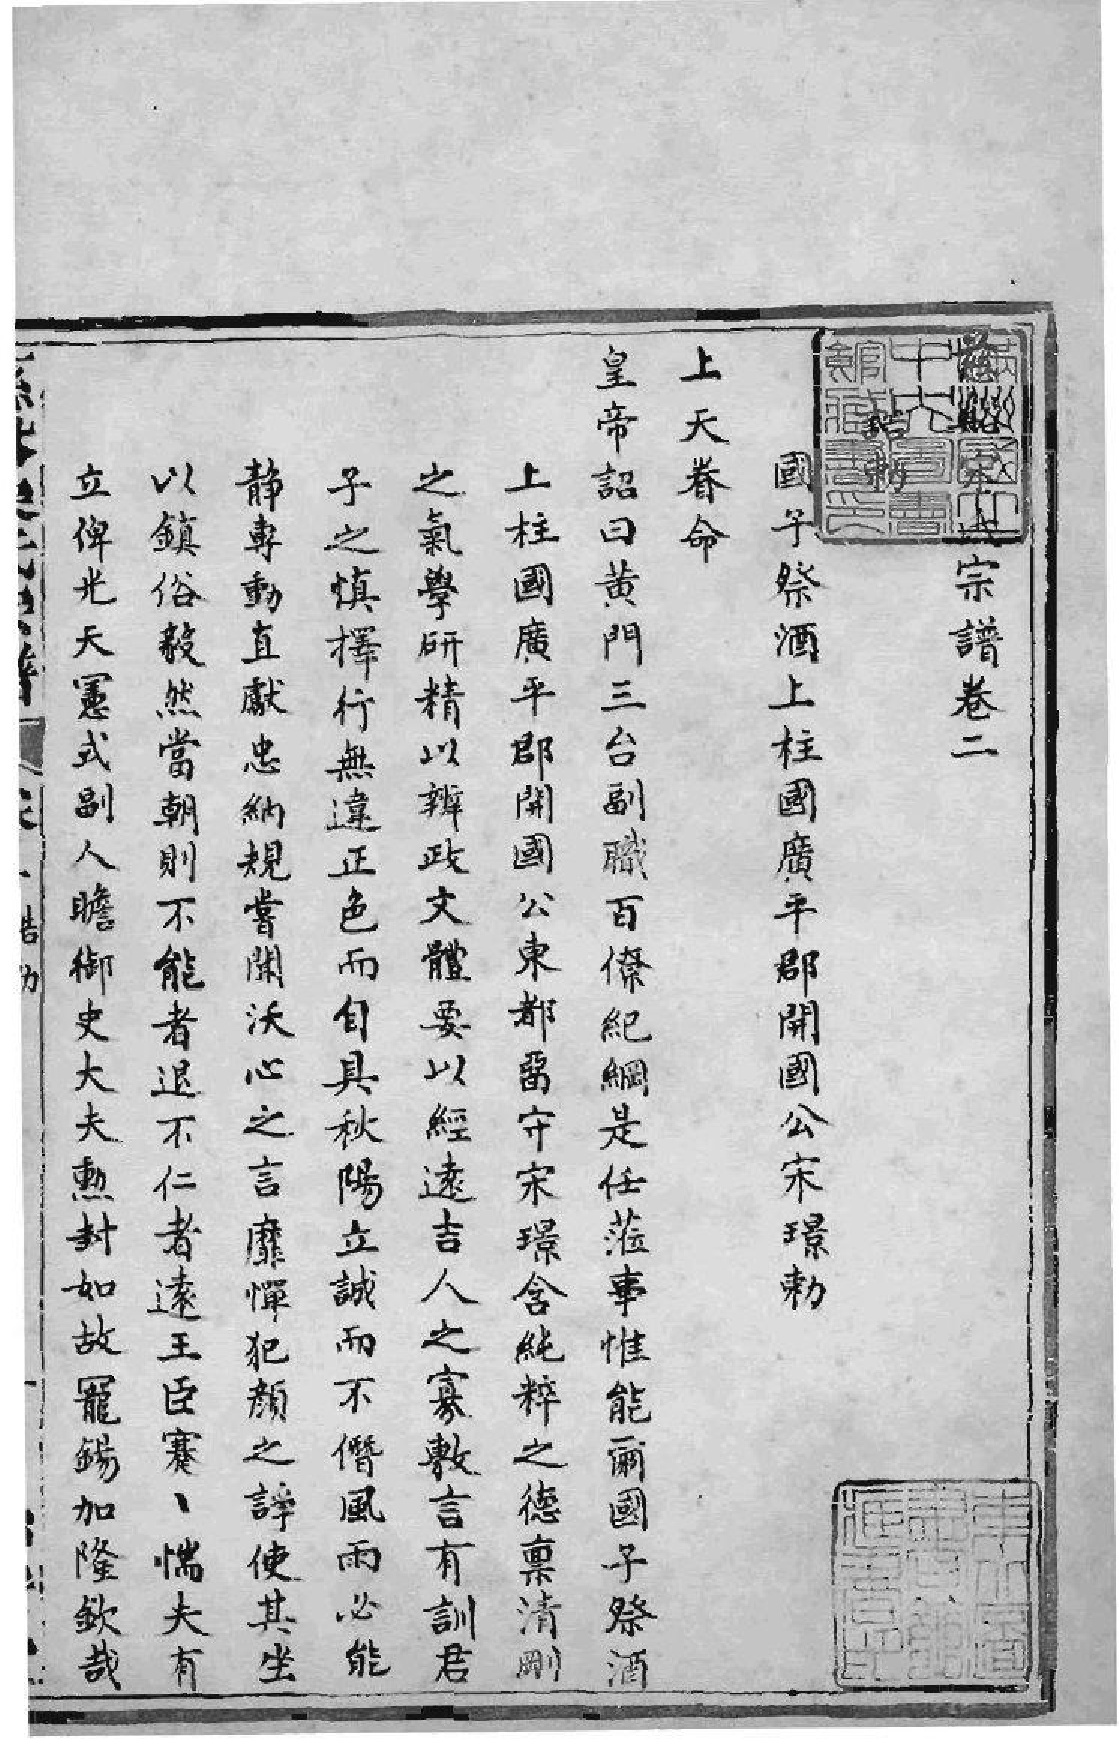 慈谿宋氏宗譜卷二
誥勅
國子祭酒上柱國廣平郡開國公宋璟勅
上天眷命
皇帝詔曰黃門三台副職百僚紀綱是任蒞事惟能爾國子祭酒
上柱國廣平郡開國公東都畱守宋璟含純粹之德稟清剛
之氣學研精以辨政文體要以經遠吉人之寡敷言有訓君
子之慎擇行無違正色而自具秋陽立誠而不僭風雨必能
靜專動直獻忠納規嘗開沃心之言靡憚犯顏之諍使其坐
以鎮俗毅然當朝則不能者退不仁者遠王臣蹇丶惴夫有
立俾光天憲式副人瞻御史大夫勲封如故罷錫加隆欽哉